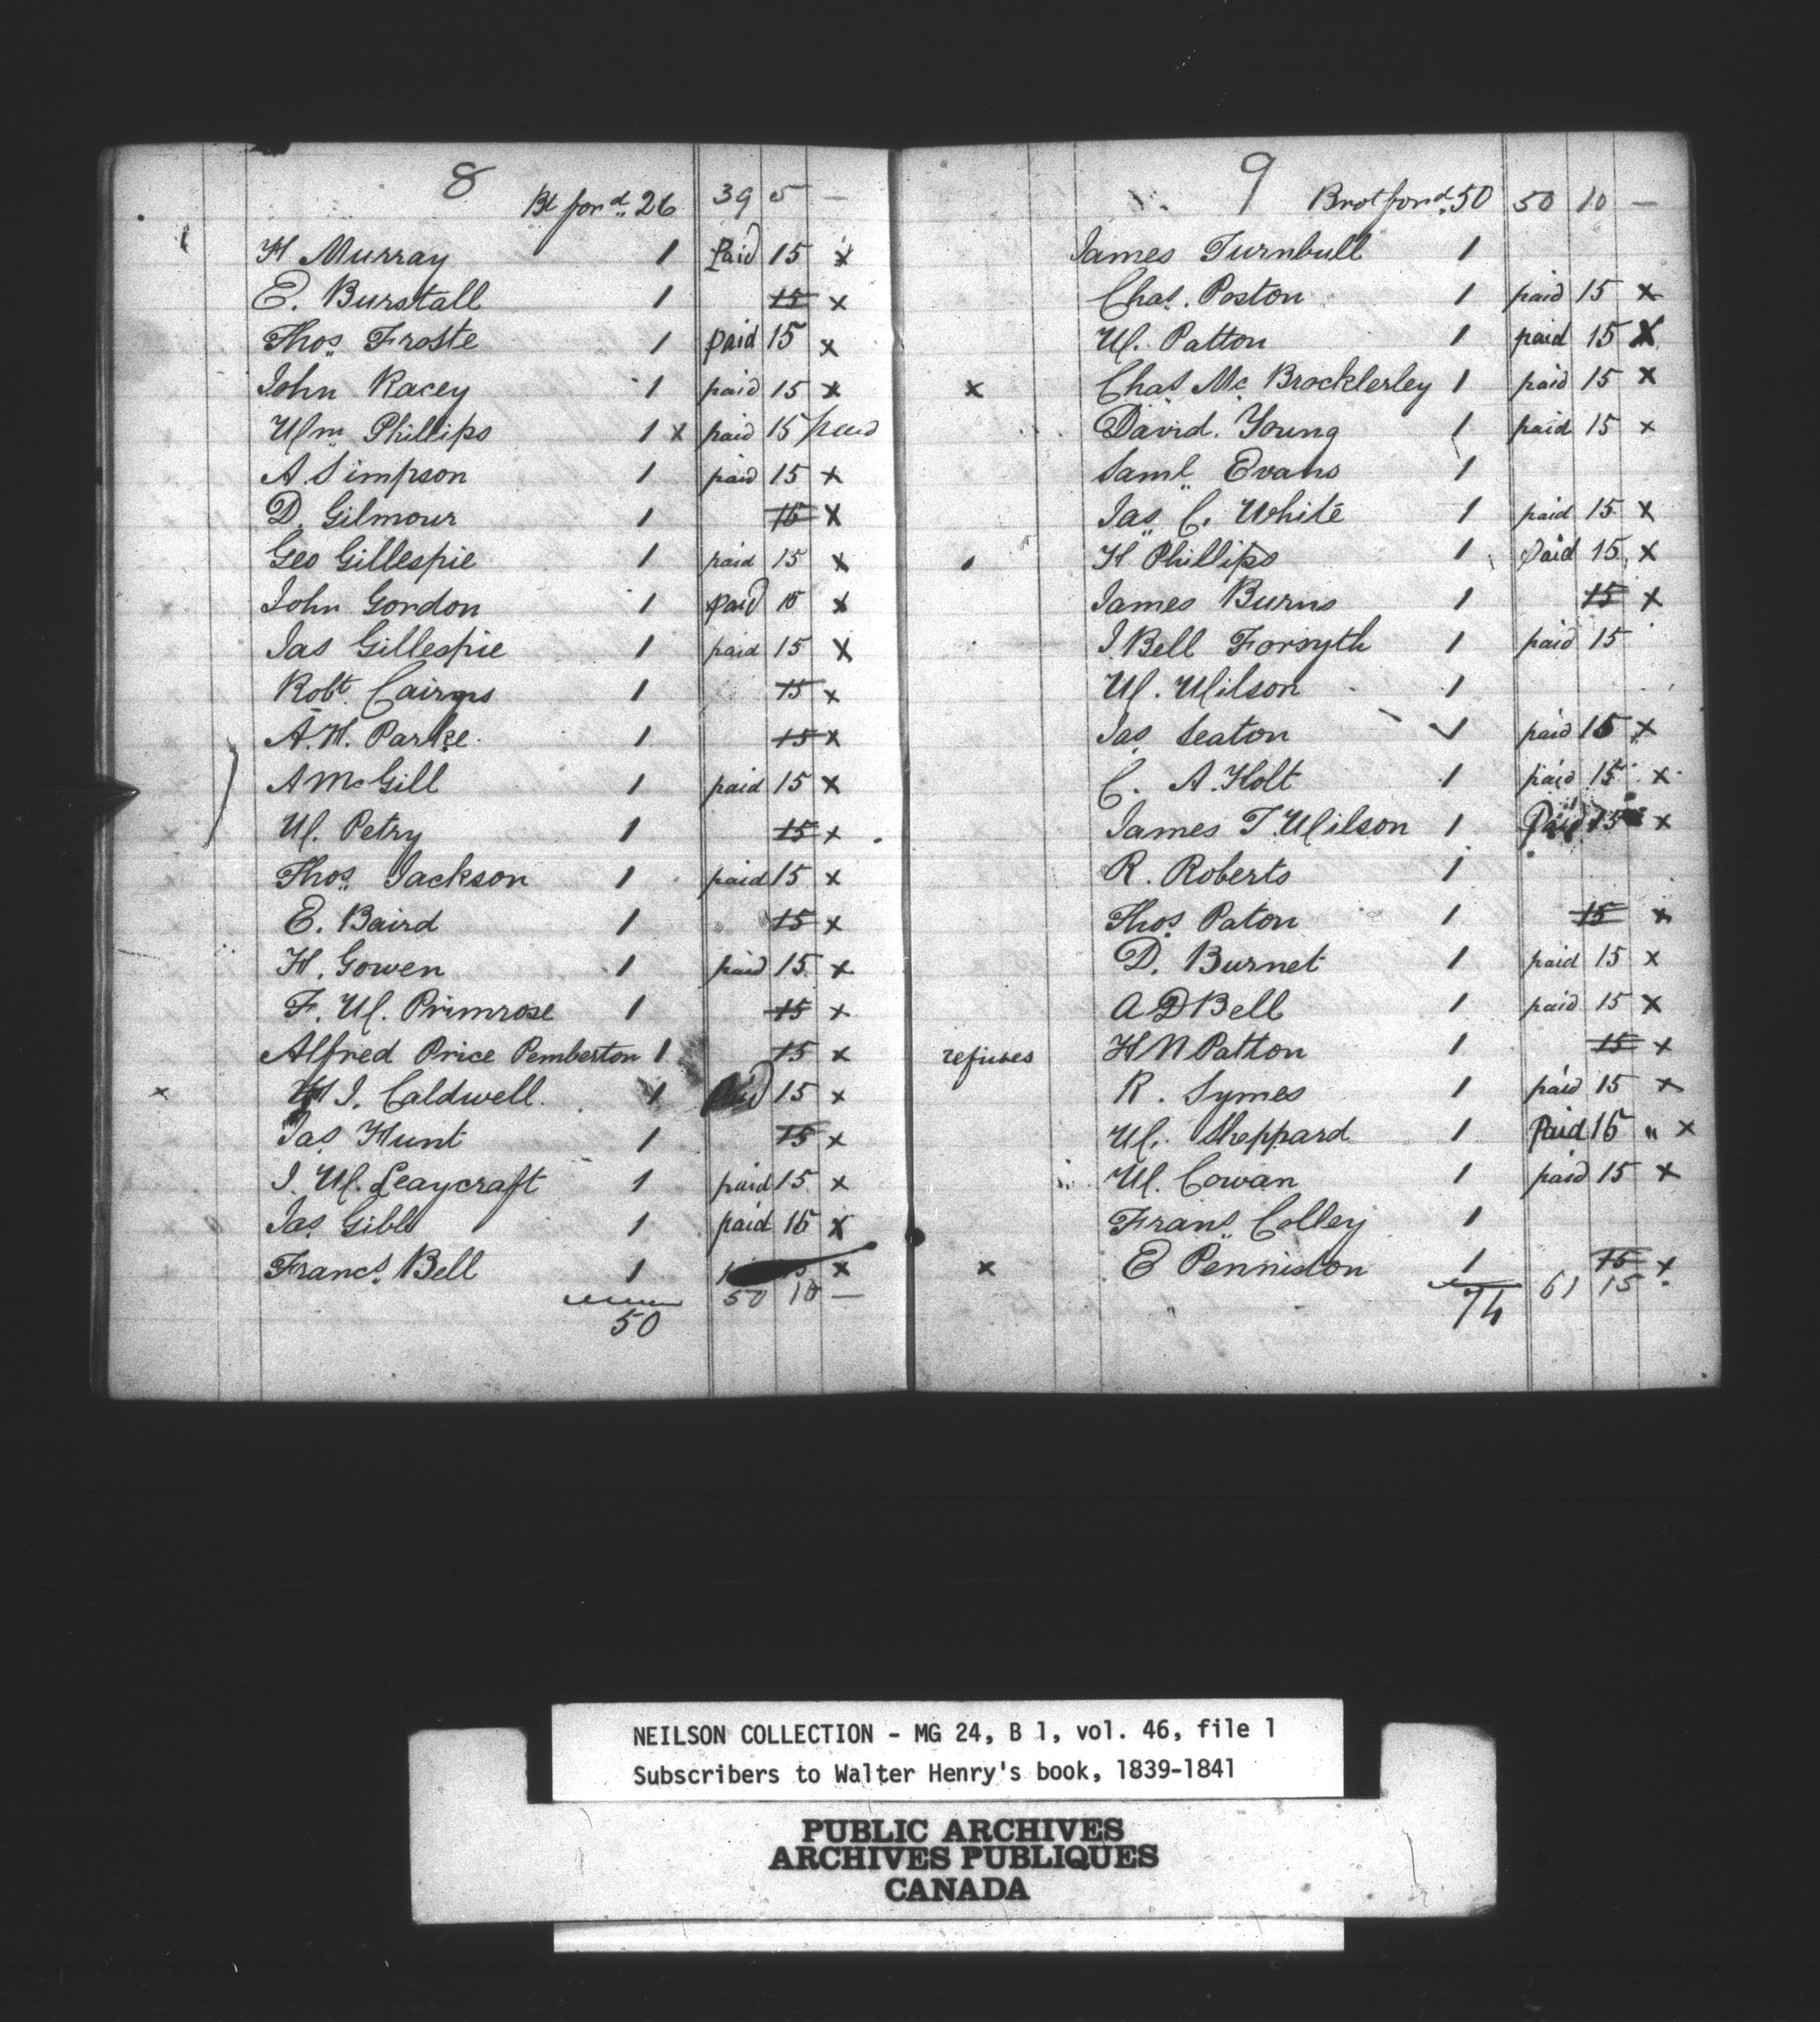 8
Bt forwd. 26 39 5 —
H Murray 1 Paid 15 x
E. Burstall 1 15 x
Thos. Froste 1 paid 15 x
John Racey 1 paid 15 x
Wm. Phillips 1 x paid 15 paid
A. Simpson 1 paid 15 x
D. Gilmour 1 15 x
Geo Gillespie 1 paid 15 x
John Gordon 1 paid 15 x
Jas Gillespie 1 paid 15 x
Robt. Cairns 1 15 x
A. H. Parke 1 15 x
A McGill 1 paid 15 x
W. Petry 1 15 x
Thos. Jackson 1 paid 15 x
E. Baird 1 15 x
H. Gowen 1 paid 15 x
F. W. Primrose 1 15 x
Alfred Price Pemberton 1 15 x
x H J. Caldwell 1 paid 15 x
Jas. Hunt 1 15 x
J. W. Leaycraft 1 paid 15 x
Jas. Gibb 1 paid 15 x
Francs. Bell 1 15 x
50 50 10 —
9
Brot forwd. 50 50 10 —
James Turnbull 1
Chas. Poston 1 paid 15 x
W. Patton 1 paid 15 x
x Chas. Mc. Brocklerley 1 paid 15 x
David. Young 1 paid 15 x
Saml. Evans 1
Jas. C. White 1 paid 15 x
H Phillips 1 paid 15 x
James Burns 1 15 x
J. Bell Forsyth 1 paid 15
W. Wilson 1
Jas. Seaton 1 paid 15 x
C. A. Holt 1 paid 15 x
James T. Wilson 1 Paid 15 x
R. Roberts 1
Thos. Paton 1 15 x
D. Burnet 1 paid 15 x
A D Bell 1 paid 15 x
refuses H N Patton 1 15 x
R. Symes 1 paid 15 x
W. Sheppard 1 Paid 15 " x
W. Cowan 1 paid 15 x
Frans. Colley 1
x E Penniston 1 15 x
74 61 15 .
NEILSON COLLECTION - MG 24, B 1, vol. 46, file 1
Subscribers to Walter Henry's book, 1839-1841
PUBLIC ARCHIVES
ARCHIVES PUBLIQUES
CANADA